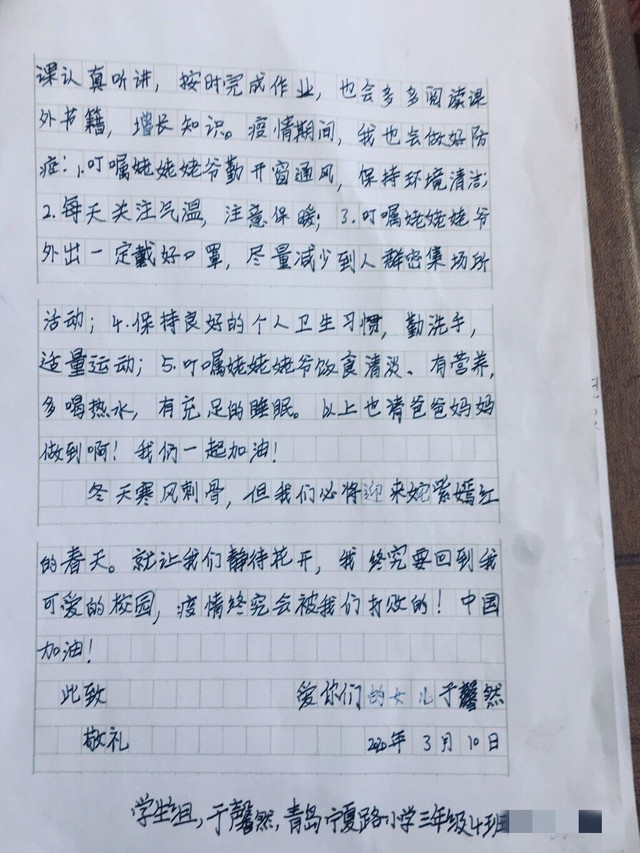 课认真听讲，按时完成作业，也会多多阅读课
外书籍，增长知识。疫情期间，我也会做好防
症：1.叮嘱姥姥姥爷勤开窗通风，保持环境清洁；
2.每天关注气温，注意保暖；3.叮嘱姥姥姥爷
外出一定戴好口罩，尽量减少到人群密集场所
活动；4.保持良好的个人卫生习惯，勤洗手，
适量运动；5.叮嘱姥姥姥爷饮食清淡、有营养，
多喝热水，有充足的睡眠。以上也请爸爸妈妈
做到啊！我们一起加油！
冬天寒风刺骨，但我们必将迎来姹紫嫣红
的春天。就让我们静待花开，我终究要回到我
可爱的校园，疫情终究会被我们打败的！中国
加油！
此致 爱你们的女儿于馨然
敬礼 2020年3月10日
学生组，于馨然，青岛宁夏路小学三年级4班